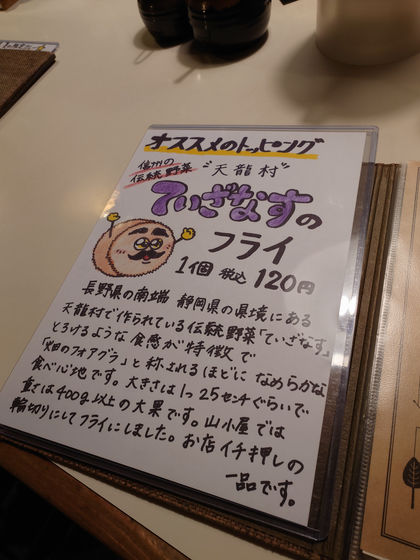 オススメのトッピング
信州の
伝統野菜
"天龍村"
ていざなすの
フライ
1個 税込 120円
長野県の南端 静岡県の県境にある
天龍村で作られている伝統野菜「ていざなす」
とろけるような食感が特徴で
「畑のフォアグラ」と称されるほどに なめらかな
食べ心地です。大きさは1つ25センチぐらいで
重さは400g以上の大果です。山小屋では
輪切りにしてフライにしました。お店イチ押しの
一品です。